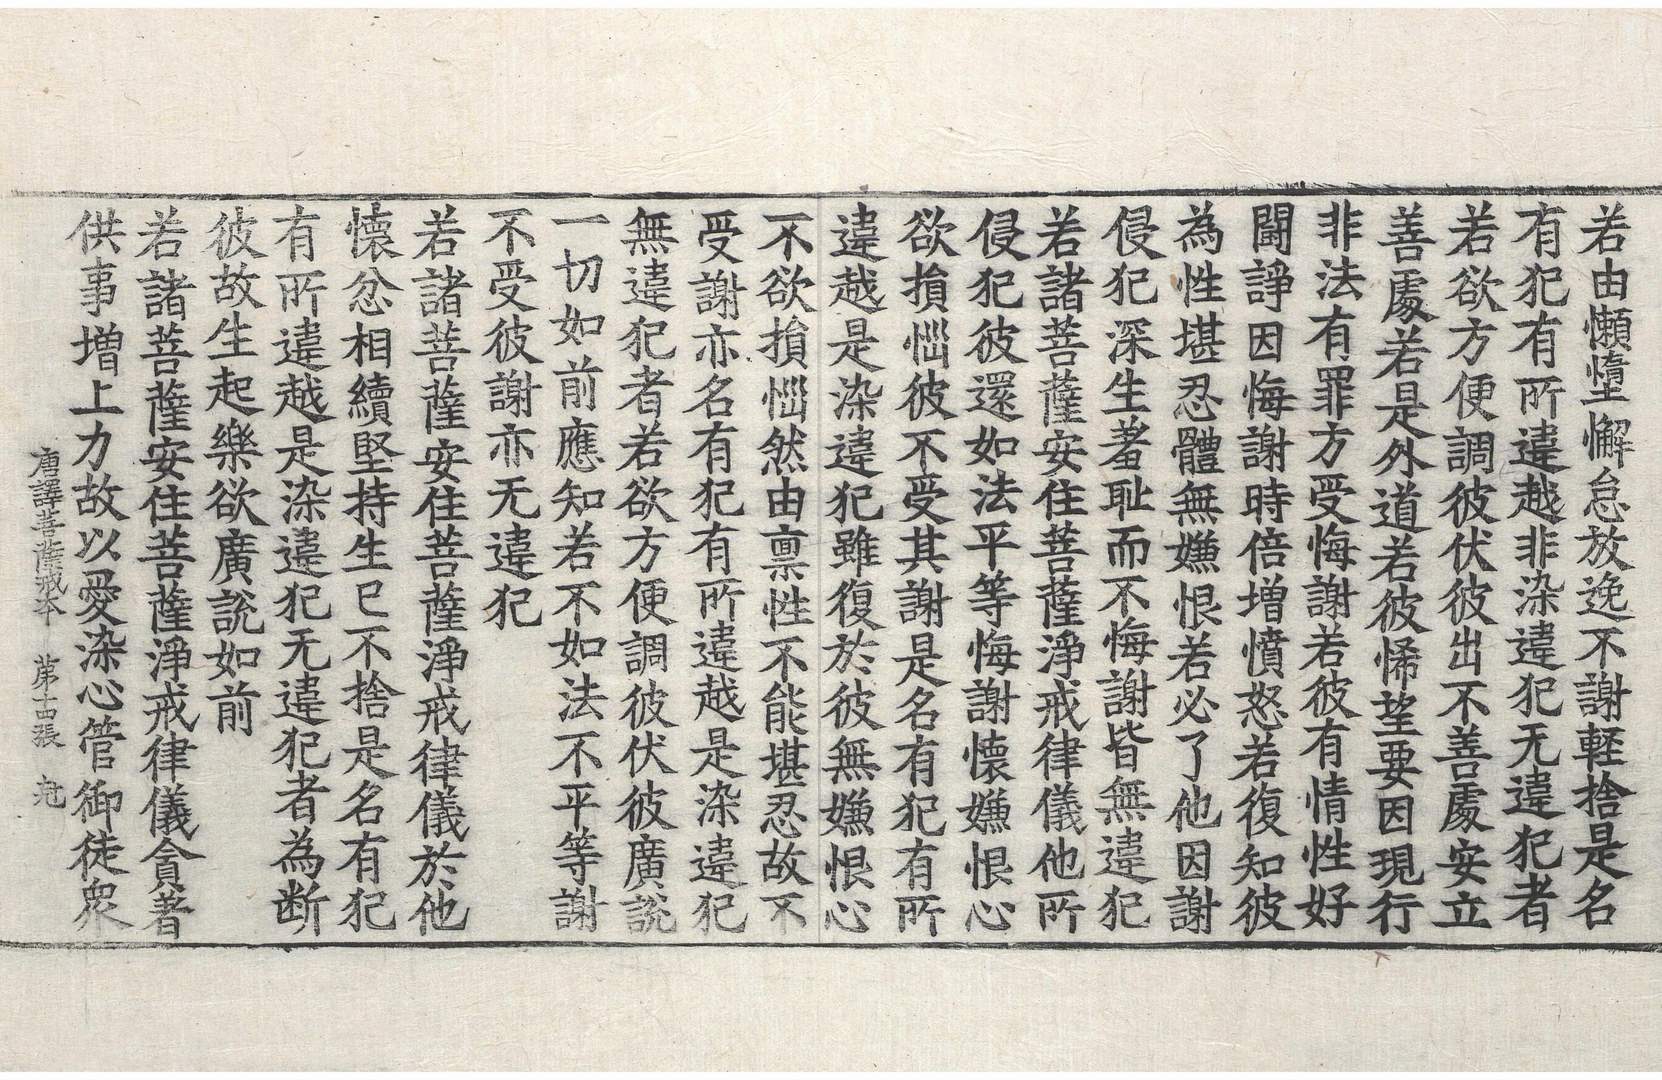 若由懶墮懈怠放逸不謝輕捨是名
有犯有所違越非染違犯无違犯者
若欲方便調彼伏彼出不善處安立
善處若是外道若彼悕望要因現行
非法有罪方受悔謝若彼有情性好
鬪諍因悔謝時倍增憤怒若復知彼
為性堪忍體無嫌恨若必了他因謝
侵犯深生羞恥而不悔謝皆無違犯
若諸菩薩安住菩薩淨戒律儀他所
侵犯彼還如法平等悔謝懷嫌恨心
欲損惱彼不受其謝是名有犯有所
違越是染違犯雖復於彼無嫌恨心
不欲損惱然由禀性不能堪忍故不
受謝亦名有犯有所違越是染違犯
無違犯者若欲方便調彼伏彼廣說
一切如前應知若不如法不平等謝
不受彼謝亦无違犯
若諸菩薩安住菩薩淨戒律儀於他
懷忿相續堅持生已不捨是名有犯
有所違越是染違犯无違犯者為断
彼故生起樂欲廣說如前
若諸菩薩安住菩薩淨戒律儀貪著
供事增上力故以愛染心管御徒衆
唐譯菩薩戒本 第十四張 尅